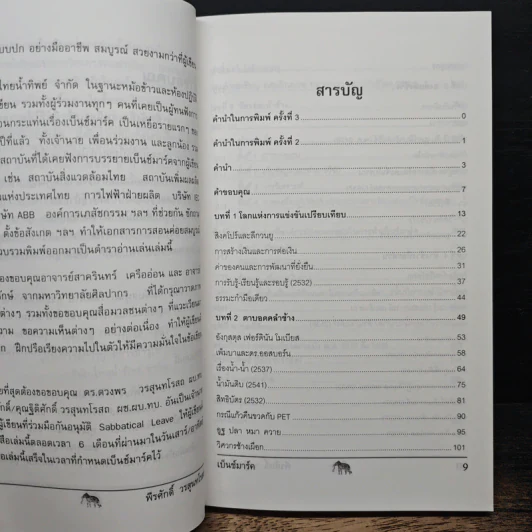 บบปก อย่างมืออาชีพ สมบูรณ์ สวยงามกว่าที่ผู้เขียน
ไทยน้ำทิพย์ จำกัด ในฐานะหม้อข้าวและห้องปฏิบัติ
ขียน รวมทั้งผู้ร่วมงานทุกๆ คนที่เคยเป็นผู้ทนฟังการ
อนกระแท่นเรื่องเบ็นช์มาร์ค เป็นเหยื่อรายแรกๆ
ปีที่แล้ว ทั้งเจ้านาย เพื่อนร่วมงาน และลูกน้อง
สถาบันที่ได้เคยฟังการบรรยายเบ็นช์มาร์คจากผู้เขียน
เช่น สถาบันสิ่งแวดล้อมไทย สถาบันเพิ่มผลผลิต
แห่งประเทศไทย การไฟฟ้าฝ่ายผลิต บริษัท
ษัท ABB องค์การเภสัชกรรม ฯลฯ ที่ช่วยกัน ซักถาม
ตั้งข้อสังเกต ฯลฯ ทำให้เอกสารการสอนค่อยสมบูรณ์
วบรวมพิมพ์ออกมาเป็นตำราอ่านเล่นเล่มนี้
องขอบคุณอาจารย์สาครินทร์ เครืออ่อน และ อาจารย์
ักษ์ จากมหาวิทยาลัยศิลปากร ที่ได้กรุณาวาดภาพ
ต่างๆ รวมทั้งขอขอบคุณสื่อมวลชนต่างๆ ที่แวะเวียนมา
วาม ขอความเห็นต่างๆ อย่างต่อเนื่อง ทำให้ผู้เขียน
ฝึกปรือเรียงความไปในตัวให้มีความมั่นใจในข้อเขียน
ยที่สุดต้องขอขอบคุณ ดร.ดวงพร วรสุนทโรสถ ผบ.ทบ.
ศักดิ์/คุณฐิติศักดิ์ วรสุนทโรสถ ผช.ผบ.ทบ. อันเป็นเจ้านาย
ผู้เขียนที่ร่วมมือกันอนุมัติ Sabbatical Leave ให้ผู้เขียน
สือเล่มนี้ตลอดเวลา 6 เดือนที่ผ่านมาในวันเสาร์/อาทิตย์
อเล่มนี้เสร็จในเวลาที่กำหนดเบ็นช์มาร์คไว้
พีรศักดิ์ วรสุนทโรสถ
สารบัญ
คำนำในการพิมพ์ ครั้งที่ 3 0
คำนำในการพิมพ์ ครั้งที่ 2 1
คำนำ 3
คำขอบคุณ 7
บทที่ 1 โลกแห่งการแข่งขันเปรียบเทียบ 13
สิงคโปร์และลีกวนยู 22
การสร้างเงินและการต่อเงิน 26
ค่าของคนและการพัฒนาที่ยั่งยืน 31
การรับรู้-เรียนรู้และรอบรู้ (2532) 37
ธรรมะกำมือเดียว 44
บทที่ 2 ตาบอดคลำช้าง 49
อังกุสตุส เฟอร์ดินัน โมเบียส 53
เพิ่มบาและดร.ออสบอร์น 58
เรื่องน้ำ-น้ำ (2537) 64
น้ำมันดิบ (2541) 75
สิทธิบัตร (2532) 81
กรณีแก้วคืนขวดกับ PET 90
งูงู ปลา หมา ควาย 95
วิศวกรช้างเผือก 101
เบ็นช์มาร์ค 9